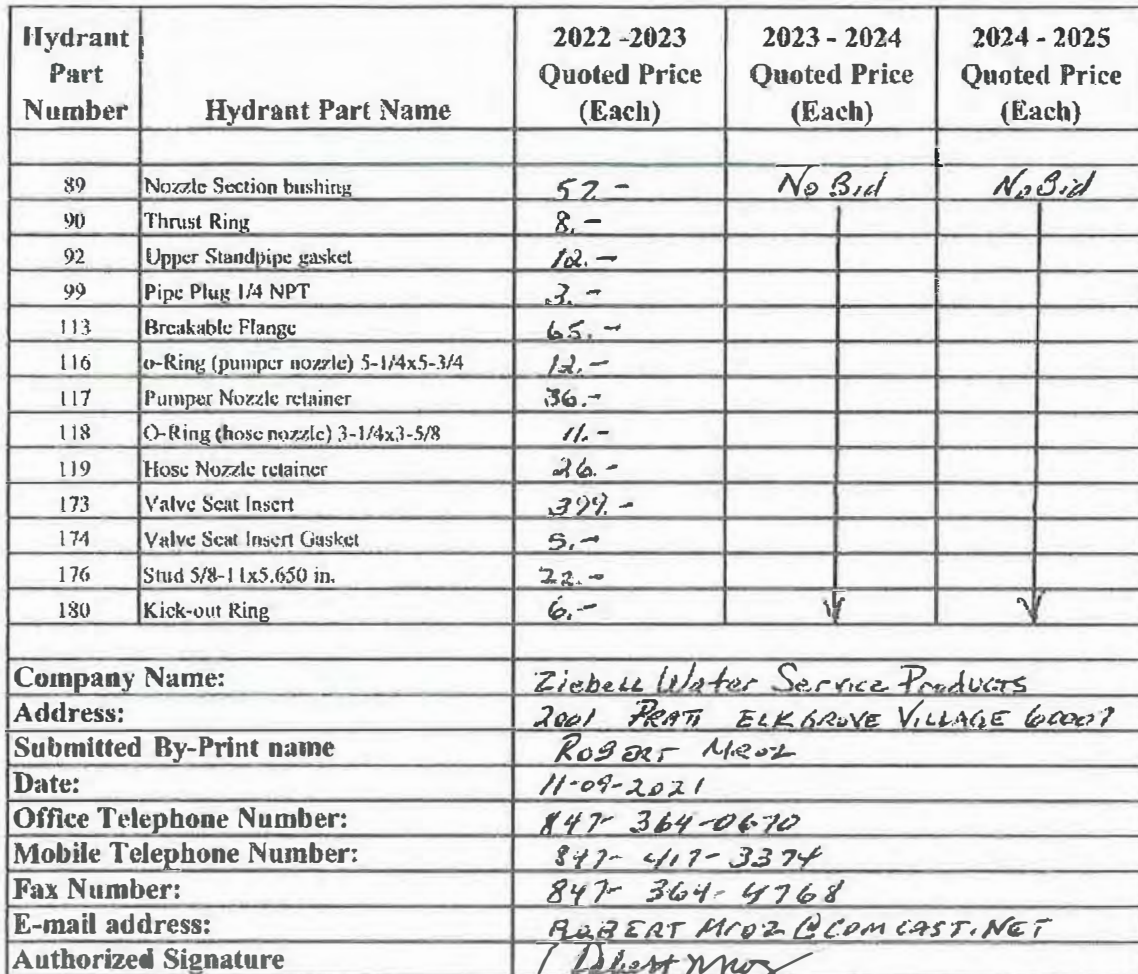 Hydrant Part Number Hydrant Part Name 2022 -2023 Quoted Price (Each) 2023 - 2024 Quoted Price (Each) 2024 - 2025 Quoted Price (Each)
89 Nozzle Section bushing 57.- No Bid No Bid
90 Thrust Ring 8.-
92 Upper Standpipe gasket 12.-
99 Pipe Plug 1/4 NPT 3.-
113 Breakable Flange 65.-
116 o-Ring (pumper nozzle) 5-1/4x5-3/4 12.-
117 Pumper Nozzle retainer 36.-
118 O-Ring (hose nozzle) 3-1/4x3-5/8 11.-
119 Hose Nozzle retainer 26.-
173 Valve Seat Insert 399.-
174 Valve Seat Insert Gasket 5.-
176 Stud 5/8-11x5.650 in. 22.-
180 Kick-out Ring 6.-
Company Name: Ziebell Water Service Products
Address: 2001 PRATT ELK GROVE VILLAGE 60007
Submitted By-Print name ROBERT MROZ
Date: 11-09-2021
Office Telephone Number: 847-364-0670
Mobile Telephone Number: 847-417-3374
Fax Number: 847-364-4768
E-mail address: ROBERT MROZ@COMCAST.NET
Authorized Signature Robert Mroz